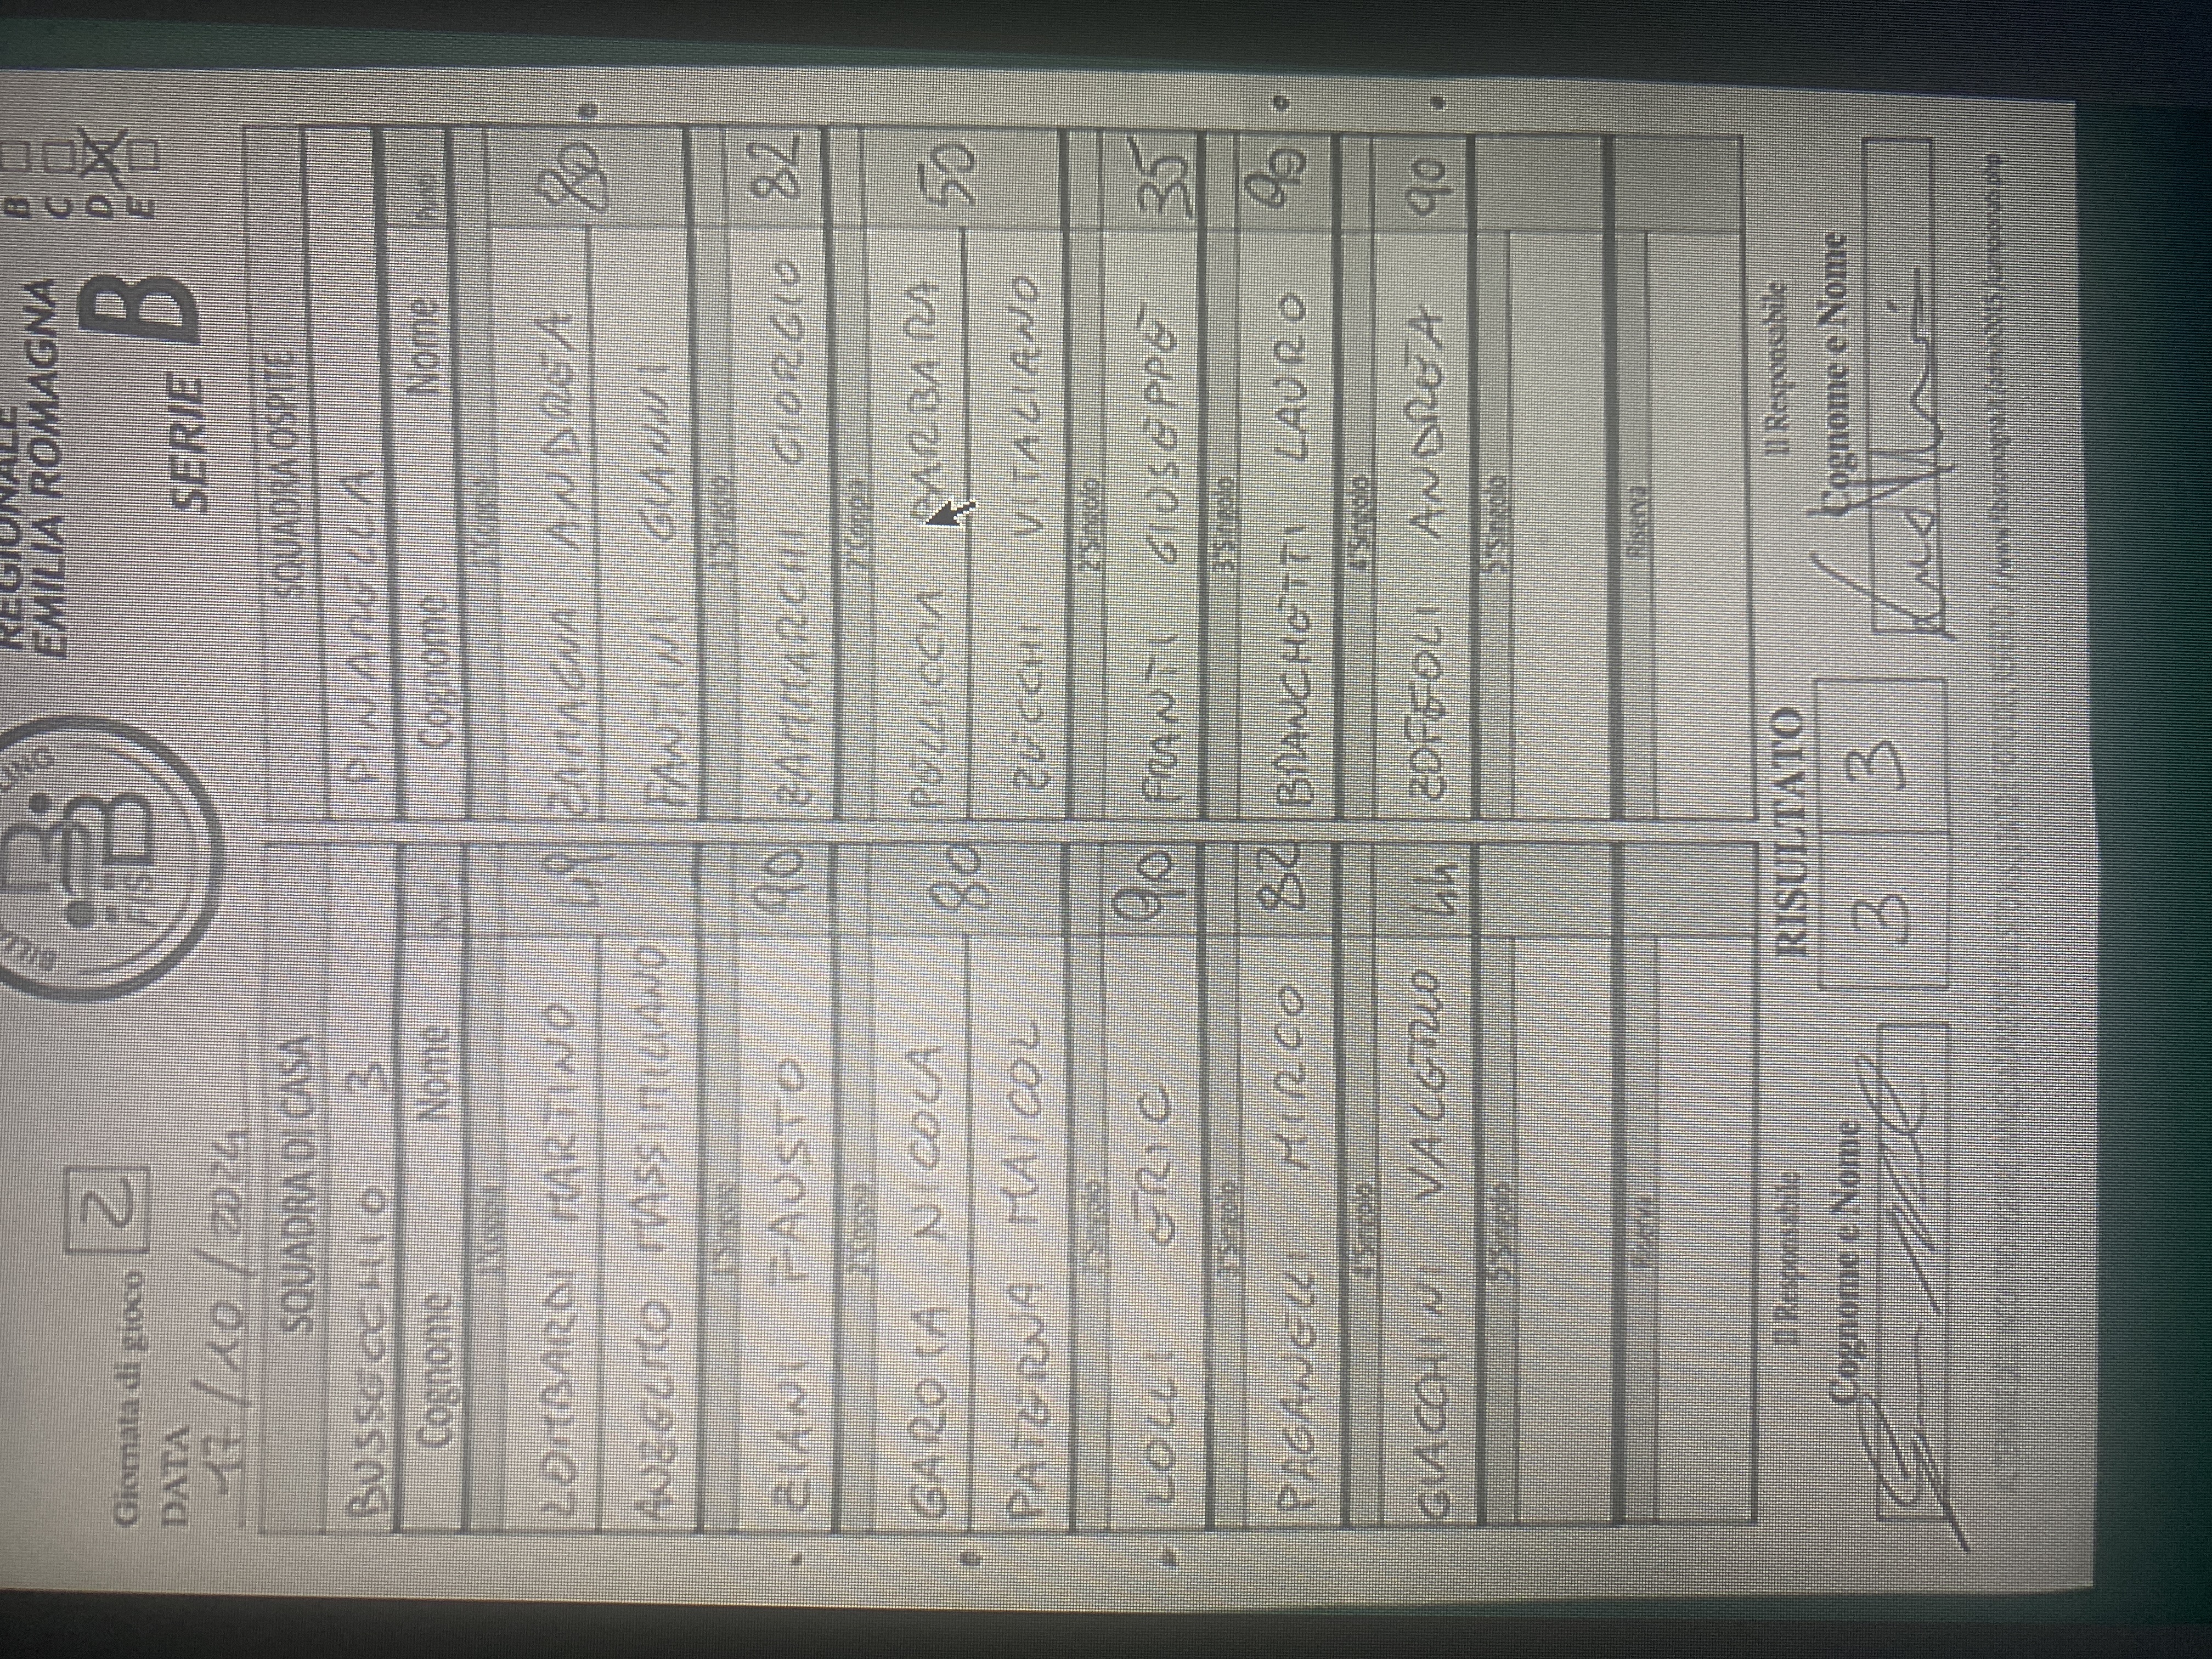 REGIONALE
EMILIA ROMAGNA
SERIE B
B
C
D
E
FISB
Giornata di gioco 2
DATA
17/10/2024
SQUADRA DI CASA SQUADRA OSPITE
BUSSECCHIO 3 PINARELLA
Cognome Nome Cognome Nome Punti
LOMBARDI MARTINO ZAMAGNA ANDREA
ANZELMO MASSIMILIANO FANTINI GIANNI
1°Singolo 1°Singolo
ZIANI FAUSTO 90 ZAMMARCHI GIORGIO 82
2°Coppia 2°Coppia
GAROIA NICOLA 80 POLLICCIA BARBARA 50
PATERNA MAICOL ZECCHI VITALIANO
2°Singolo 2°Singolo
LOLLI ERIC 90 FRANTI GIUSEPPE 35
3°Singolo 3°Singolo
PAGANELLI MIRCO 82 BRANCHETTI LAURO 90
4°Singolo 4°Singolo
GIACCHINI VALERIO 44 ZOFFOLI ANDREA 90
5°Singolo 5°Singolo
Riserva Riserva
Il Responsabile RISULTATO Il Responsabile
Cognome e Nome 3 3 Cognome e Nome